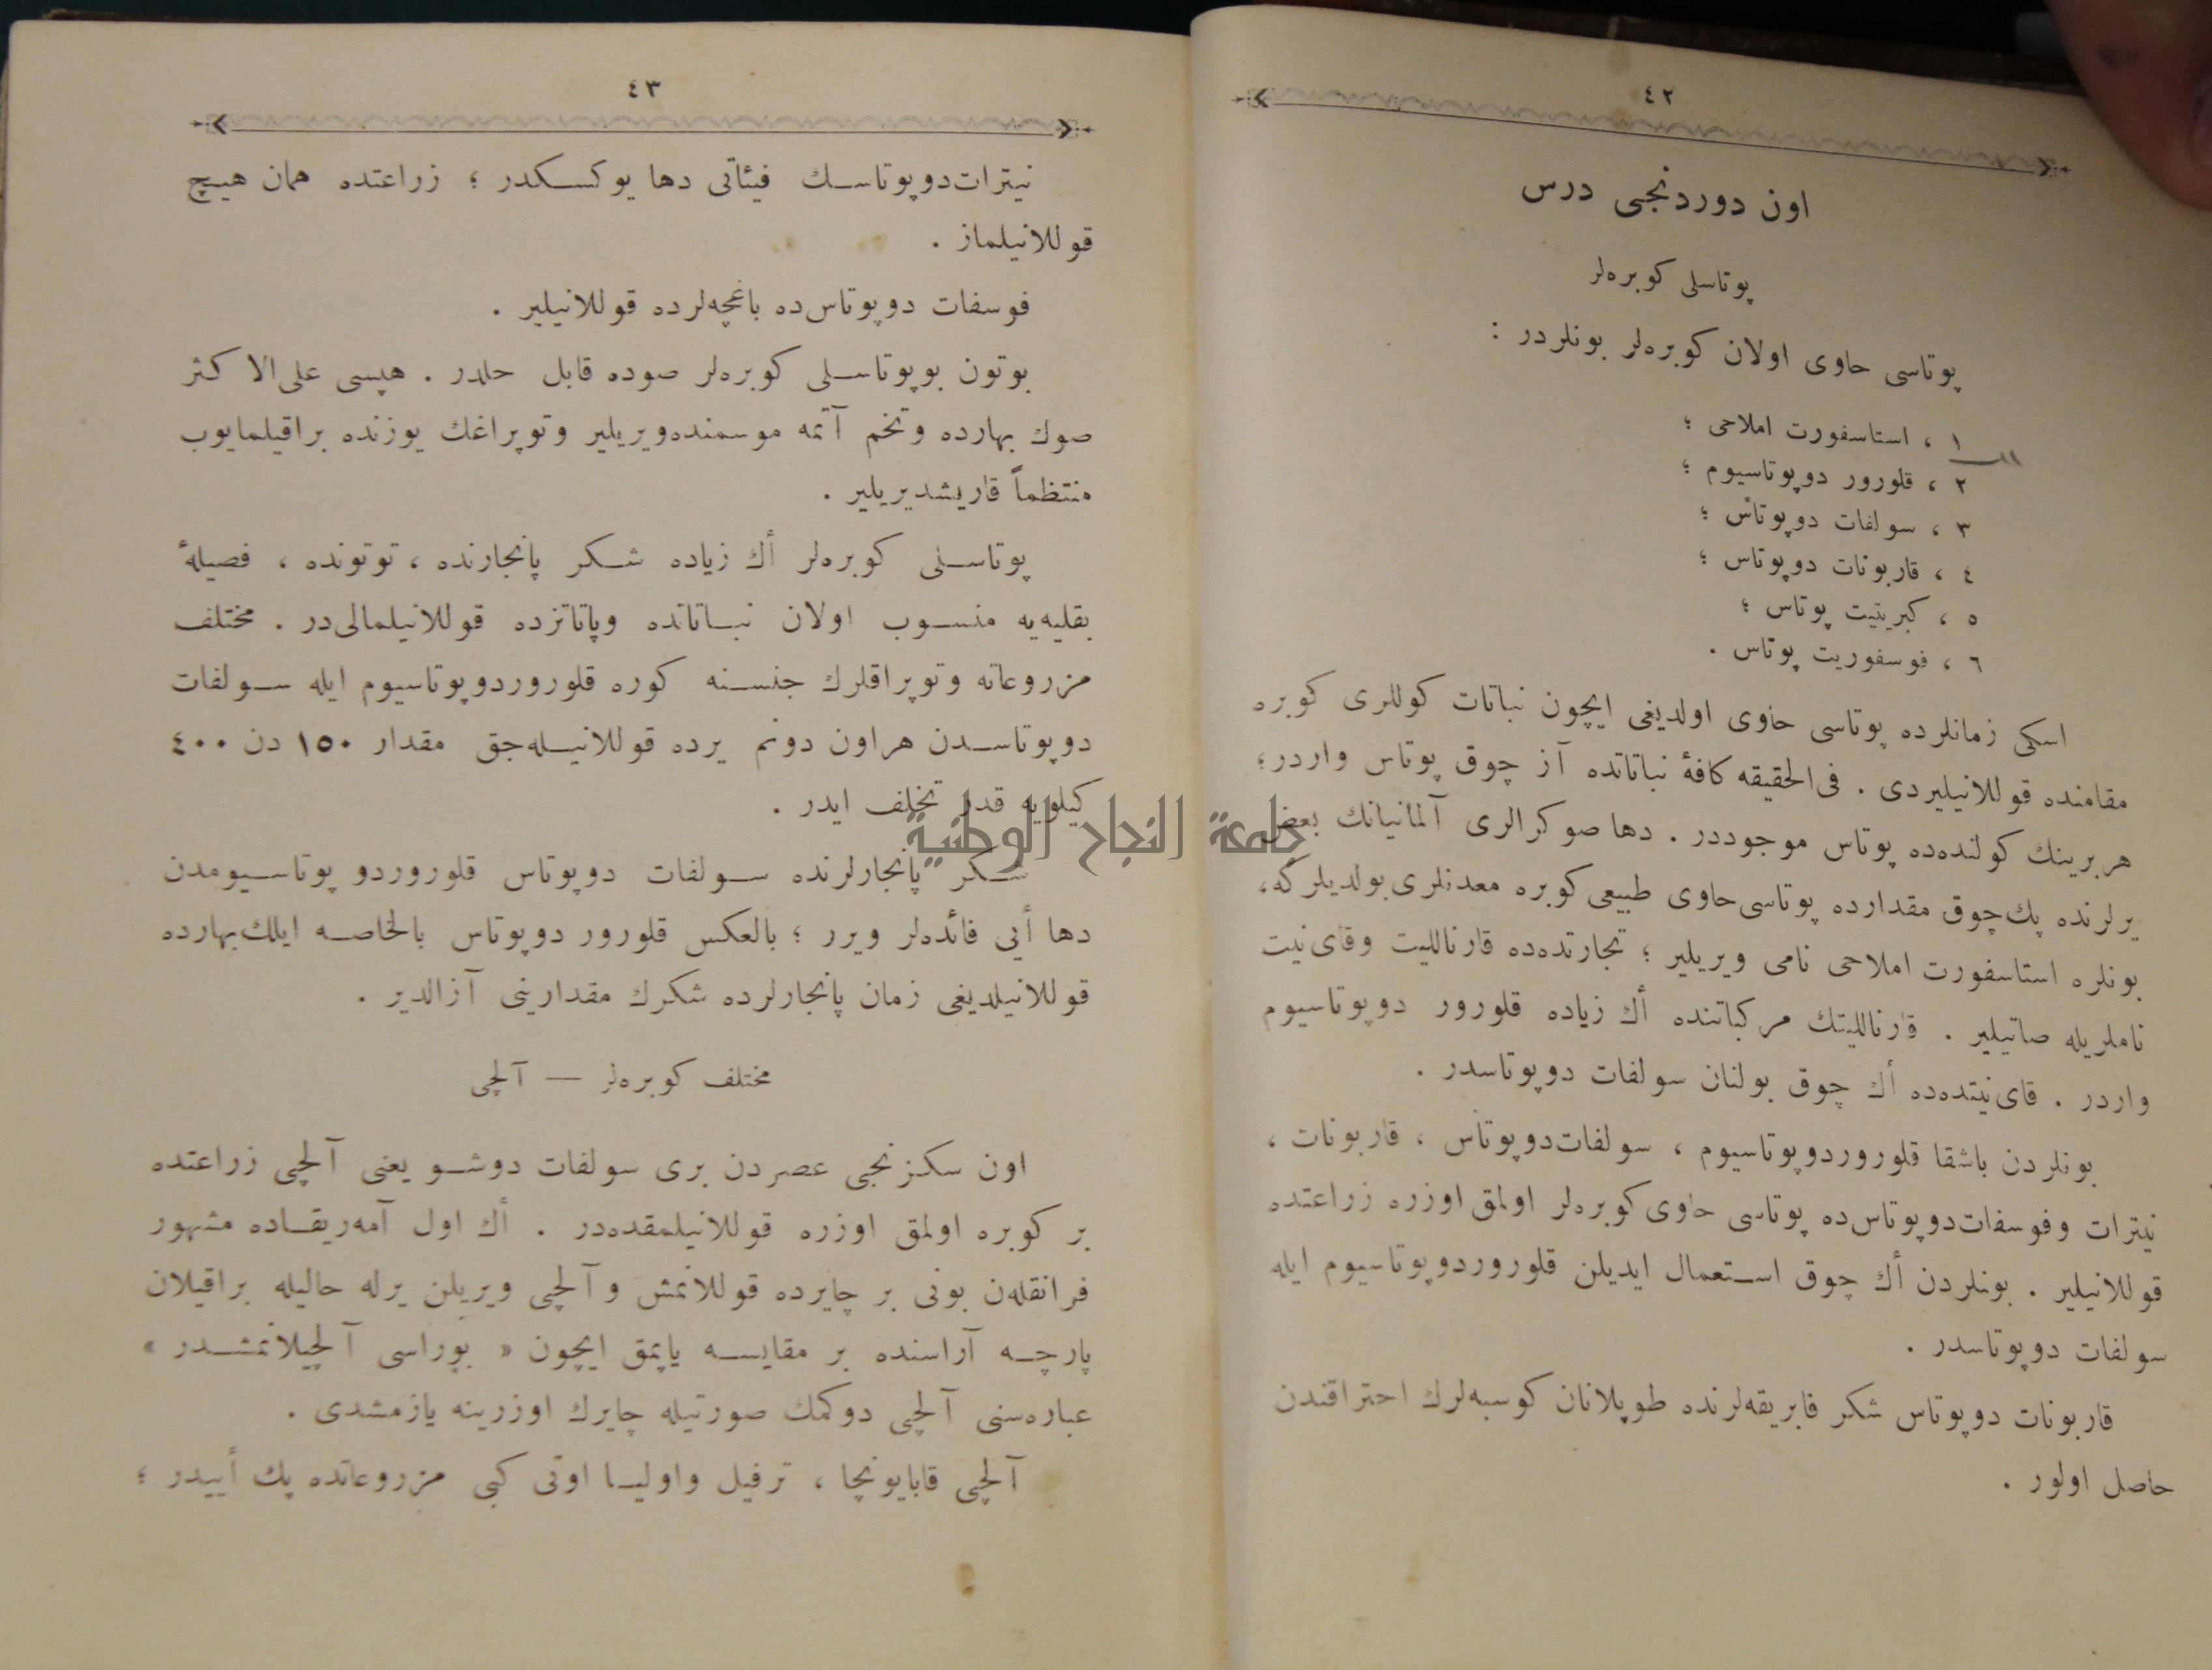 ٤٢
اون دوردنجی درس
پوتاسلی كوبره‌لر
پوتاسی حاوی اولان كوبره‌لر بونلردر :
١ ، استاسفورت املاحی ؛
٢ ، قلورور دوپوتاسیوم ؛
٣ ، سولفات دوپوتاس ؛
٤ ، قاربونات دوپوتاس ؛
٥ ، كبریتیت پوتاس ؛
٦ ، فوسفوریت پوتاس .
اسكی زمانلرده پوتاسی حاوی اولدیغی ایچون نباتات كوللری كوبره
مقامنده قوللانیلیردی . فی‌الحقیقه كافهٔ نباتاتده آز چوق پوتاس واردر؛
هربرینك كولنده‌ده پوتاس موجوددر . دها صوكرالری آلمانیانك بعض
یرلرنده پك‌چوق مقدارده پوتاسی‌حاوی طبیعی‌كوبره معدنلری‌بولدیلركه،
بونلره استاسفورت املاحی نامی ویریلیر ؛ تجارتده‌ده قارناللیت وقای‌نیت
ناملریله صاتیلیر . قارناللیتك مركباتنده أك زیاده قلورور دوپوتاسیوم
واردر . قای‌نیتده‌ده أك چوق بولنان سولفات دوپوتاسدر .
بونلردن باشقا قلوروردوپوتاسیوم ، سولفات‌دوپوتاس ، قاربونات ،
نیترات وفوسفات‌دوپوتاس‌ده پوتاسی حاوی‌كوبره‌لر اولمق اوزره زراعتده
قوللانیلیر . بونلردن أك چوق استعمال ایدیلن قلوروردوپوتاسیوم ایله
سولفات دوپوتاسدر .
قاربونات دوپوتاس شكر فابریقه‌لرنده طوپلانان كوسبه‌لرك احتراقندن
حاصل اولور .
٤٣
نیترات‌دوپوتاسك فیئاتی دها یوكسكدر ؛ زراعتده همان هیچ
قوللانیلماز .
فوسفات دوپوتاس‌ده باغچه‌لرده قوللانیلیر .
بوتون بوپوتاسلی كوبره‌لر صوده قابل حلدر . هپسی علی‌الاكثر
صوك بهارده وتخم آتمه موسمنده‌ویریلیر وتوپراغك یوزنده براقیلمایوب
منتظماً قاریشدیریلیر .
پوتاسلی كوبره‌لر أك زیاده شكر پانجارنده ، توتونده ، فصیلهٔ
بقلیه‌یه منسوب اولان نباتاتده وپاتاتزده قوللانیلمالی‌در . مختلف
مزروعاته وتوپراقلرك جنسنه كوره قلوروردوپوتاسیوم ایله سولفات
دوپوتاسدن هراون دونم یرده قوللانیله‌جق مقدار ١٥٠ دن ٤٠٠
كیلویه قدر تخلف ایدر .
جامعة النجاح الوطنية
شكر پانجارلرنده سولفات دوپوتاس قلوروردو پوتاسیومدن
دها أیی فائده‌لر ویرر ؛ بالعكس قلورور دوپوتاس بالخاصه ایلك‌بهارده
قوللانیلدیغی زمان پانجارلرده شكرك مقدارینی آزالدیر .
مختلف كوبره‌لر — آلچی
اون سكزنجی عصردن بری سولفات دوشو یعنی آلچی زراعتده
بر كوبره اولمق اوزره قوللانیلمقده‌در . أك اول آمه‌ریقاده مشهور
فرانقله‌ن بونی بر چایرده قوللانمش وآلچی ویریلن یرله حالیله براقیلان
پارچه آراسنده بر مقایسه یاپمق ایچون « بوراسی آلچیلانمشدر »
عباره‌سنی آلچی دوكمك صورتیله چایرك اوزرینه یازمشدی .
آلچی قابایونجا ، ترفیل واولیا اوتی كبی مزروعاتده پك أییدر ؛